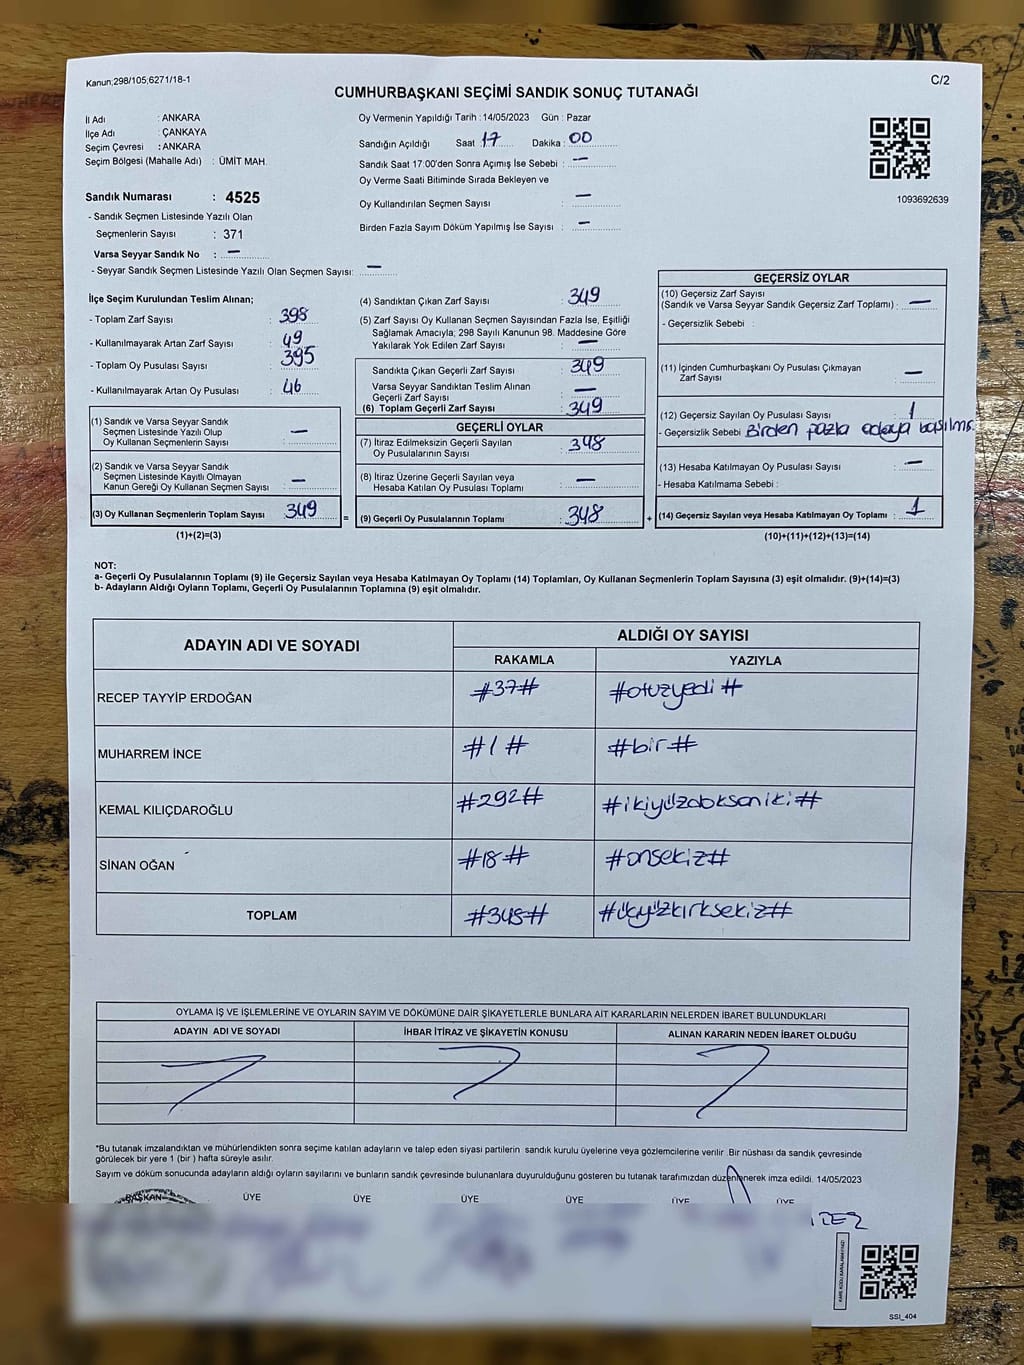 Kanun;298/105;6271/18-1
C/2
CUMHURBAŞKANI SEÇİMİ SANDIK SONUÇ TUTANAĞI
İl Adı : ANKARA
İlçe Adı : ÇANKAYA
Seçim Çevresi : ANKARA
Seçim Bölgesi (Mahalle Adı) : ÜMİT MAH.
Sandık Numarası : 4525
- Sandık Seçmen Listesinde Yazılı Olan
Seçmenlerin Sayısı : 371
Varsa Seyyar Sandık No : —
- Seyyar Sandık Seçmen Listesinde Yazılı Olan Seçmen Sayısı: —
Oy Vermenin Yapıldığı Tarih : 14/05/2023 Gün : Pazar
Sandığın Açıldığı Saat : 17 Dakika : 00
Sandık Saat 17:00'den Sonra Açımış İse Sebebi : —
Oy Verme Saati Bitiminde Sırada Bekleyen ve
Oy Kullandırılan Seçmen Sayısı : —
Birden Fazla Sayım Döküm Yapılmış İse Sayısı : —
1093692639
İlçe Seçim Kurulundan Teslim Alınan;
- Toplam Zarf Sayısı : 398
- Kullanılmayarak Artan Zarf Sayısı : 49
- Toplam Oy Pusulası Sayısı : 395
- Kullanılmayarak Artan Oy Pusulası : 46
(1) Sandık ve Varsa Seyyar Sandık
Seçmen Listesinde Yazılı Olup
Oy Kullanan Seçmenlerin Sayısı : —
(2) Sandık ve Varsa Seyyar Sandık
Seçmen Listesinde Kayıtlı Olmayan
Kanun Gereği Oy Kullanan Seçmen Sayısı : —
(3) Oy Kullanan Seçmenlerin Toplam Sayısı : 349
(1)+(2)=(3)
(4) Sandıktan Çıkan Zarf Sayısı : 349
(5) Zarf Sayısı Oy Kullanan Seçmen Sayısından Fazla İse, Eşitliği
Sağlamak Amacıyla; 298 Sayılı Kanunun 98. Maddesine Göre
Yakılarak Yok Edilen Zarf Sayısı : —
Sandıkta Çıkan Geçerli Zarf Sayısı : 349
Varsa Seyyar Sandıktan Teslim Alınan
Geçerli Zarf Sayısı : —
(6) Toplam Geçerli Zarf Sayısı : 349
GEÇERLİ OYLAR
(7) İtiraz Edilmeksizin Geçerli Sayılan
Oy Pusulalarının Sayısı : 348
(8) İtiraz Üzerine Geçerli Sayılan veya
Hesaba Katılan Oy Pusulası Toplamı : —
= (9) Geçerli Oy Pusulalarının Toplamı : 348
GEÇERSİZ OYLAR
(10) Geçersiz Zarf Sayısı
(Sandık ve Varsa Seyyar Sandık Geçersiz Zarf Toplamı) : —
- Geçersizlik Sebebi :
(11) İçinden Cumhurbaşkanı Oy Pusulası Çıkmayan
Zarf Sayısı : —
(12) Geçersiz Sayılan Oy Pusulası Sayısı : 1
- Geçersizlik Sebebi : Birden pazla adaya basılmış
(13) Hesaba Katılmayan Oy Pusulası Sayısı : —
- Hesaba Katılmama Sebebi :
+ (14) Geçersiz Sayılan veya Hesaba Katılmayan Oy Toplamı : 1
(10)+(11)+(12)+(13)=(14)
NOT:
a- Geçerli Oy Pusulalarının Toplamı (9) ile Geçersiz Sayılan veya Hesaba Katılmayan Oy Toplamı (14) Toplamları, Oy Kullanan Seçmenlerin Toplam Sayısına (3) eşit olmalıdır. (9)+(14)=(3)
b- Adayların Aldığı Oyların Toplamı, Geçerli Oy Pusulalarının Toplamına (9) eşit olmalıdır.
ADAYIN ADI VE SOYADI
ALDIĞI OY SAYISI
RAKAMLA YAZIYLA
RECEP TAYYİP ERDOĞAN #37# #otuzyedi#
MUHARREM İNCE #1# #bir#
KEMAL KILIÇDAROĞLU #292# #ikiyüzdoksaniki#
SİNAN OĞAN #18# #onsekiz#
TOPLAM #348# #üçyüzkırksekiz#
OYLAMA İŞ VE İŞLEMLERİNE VE OYLARIN SAYIM VE DÖKÜMÜNE DAİR ŞİKAYETLERLE BUNLARA AİT KARARLARIN NELERDEN İBARET BULUNDUKLARI
ADAYIN ADI VE SOYADI İHBAR İTİRAZ VE ŞİKAYETİN KONUSU ALINAN KARARIN NEDEN İBARET OLDUĞU
*Bu tutanak imzalandıktan ve mühürlendikten sonra seçime katılan adayların ve talep eden siyasi partilerin sandık kurulu üyelerine veya gözlemcilerine verilir .Bir nüshası da sandık çevresinde
görülecek bir yere 1 (bir ) hafta süreyle asılır.
Sayım ve döküm sonucunda adayların aldığı oyların sayılarını ve bunların sandık çevresinde bulunanlara duyurulduğunu gösteren bu tutanak tarafımızdan düzenlenerek imza edildi. 14/05/2023
BAŞKAN ÜYE ÜYE ÜYE ÜYE ÜYE ÜYE
SSI_404